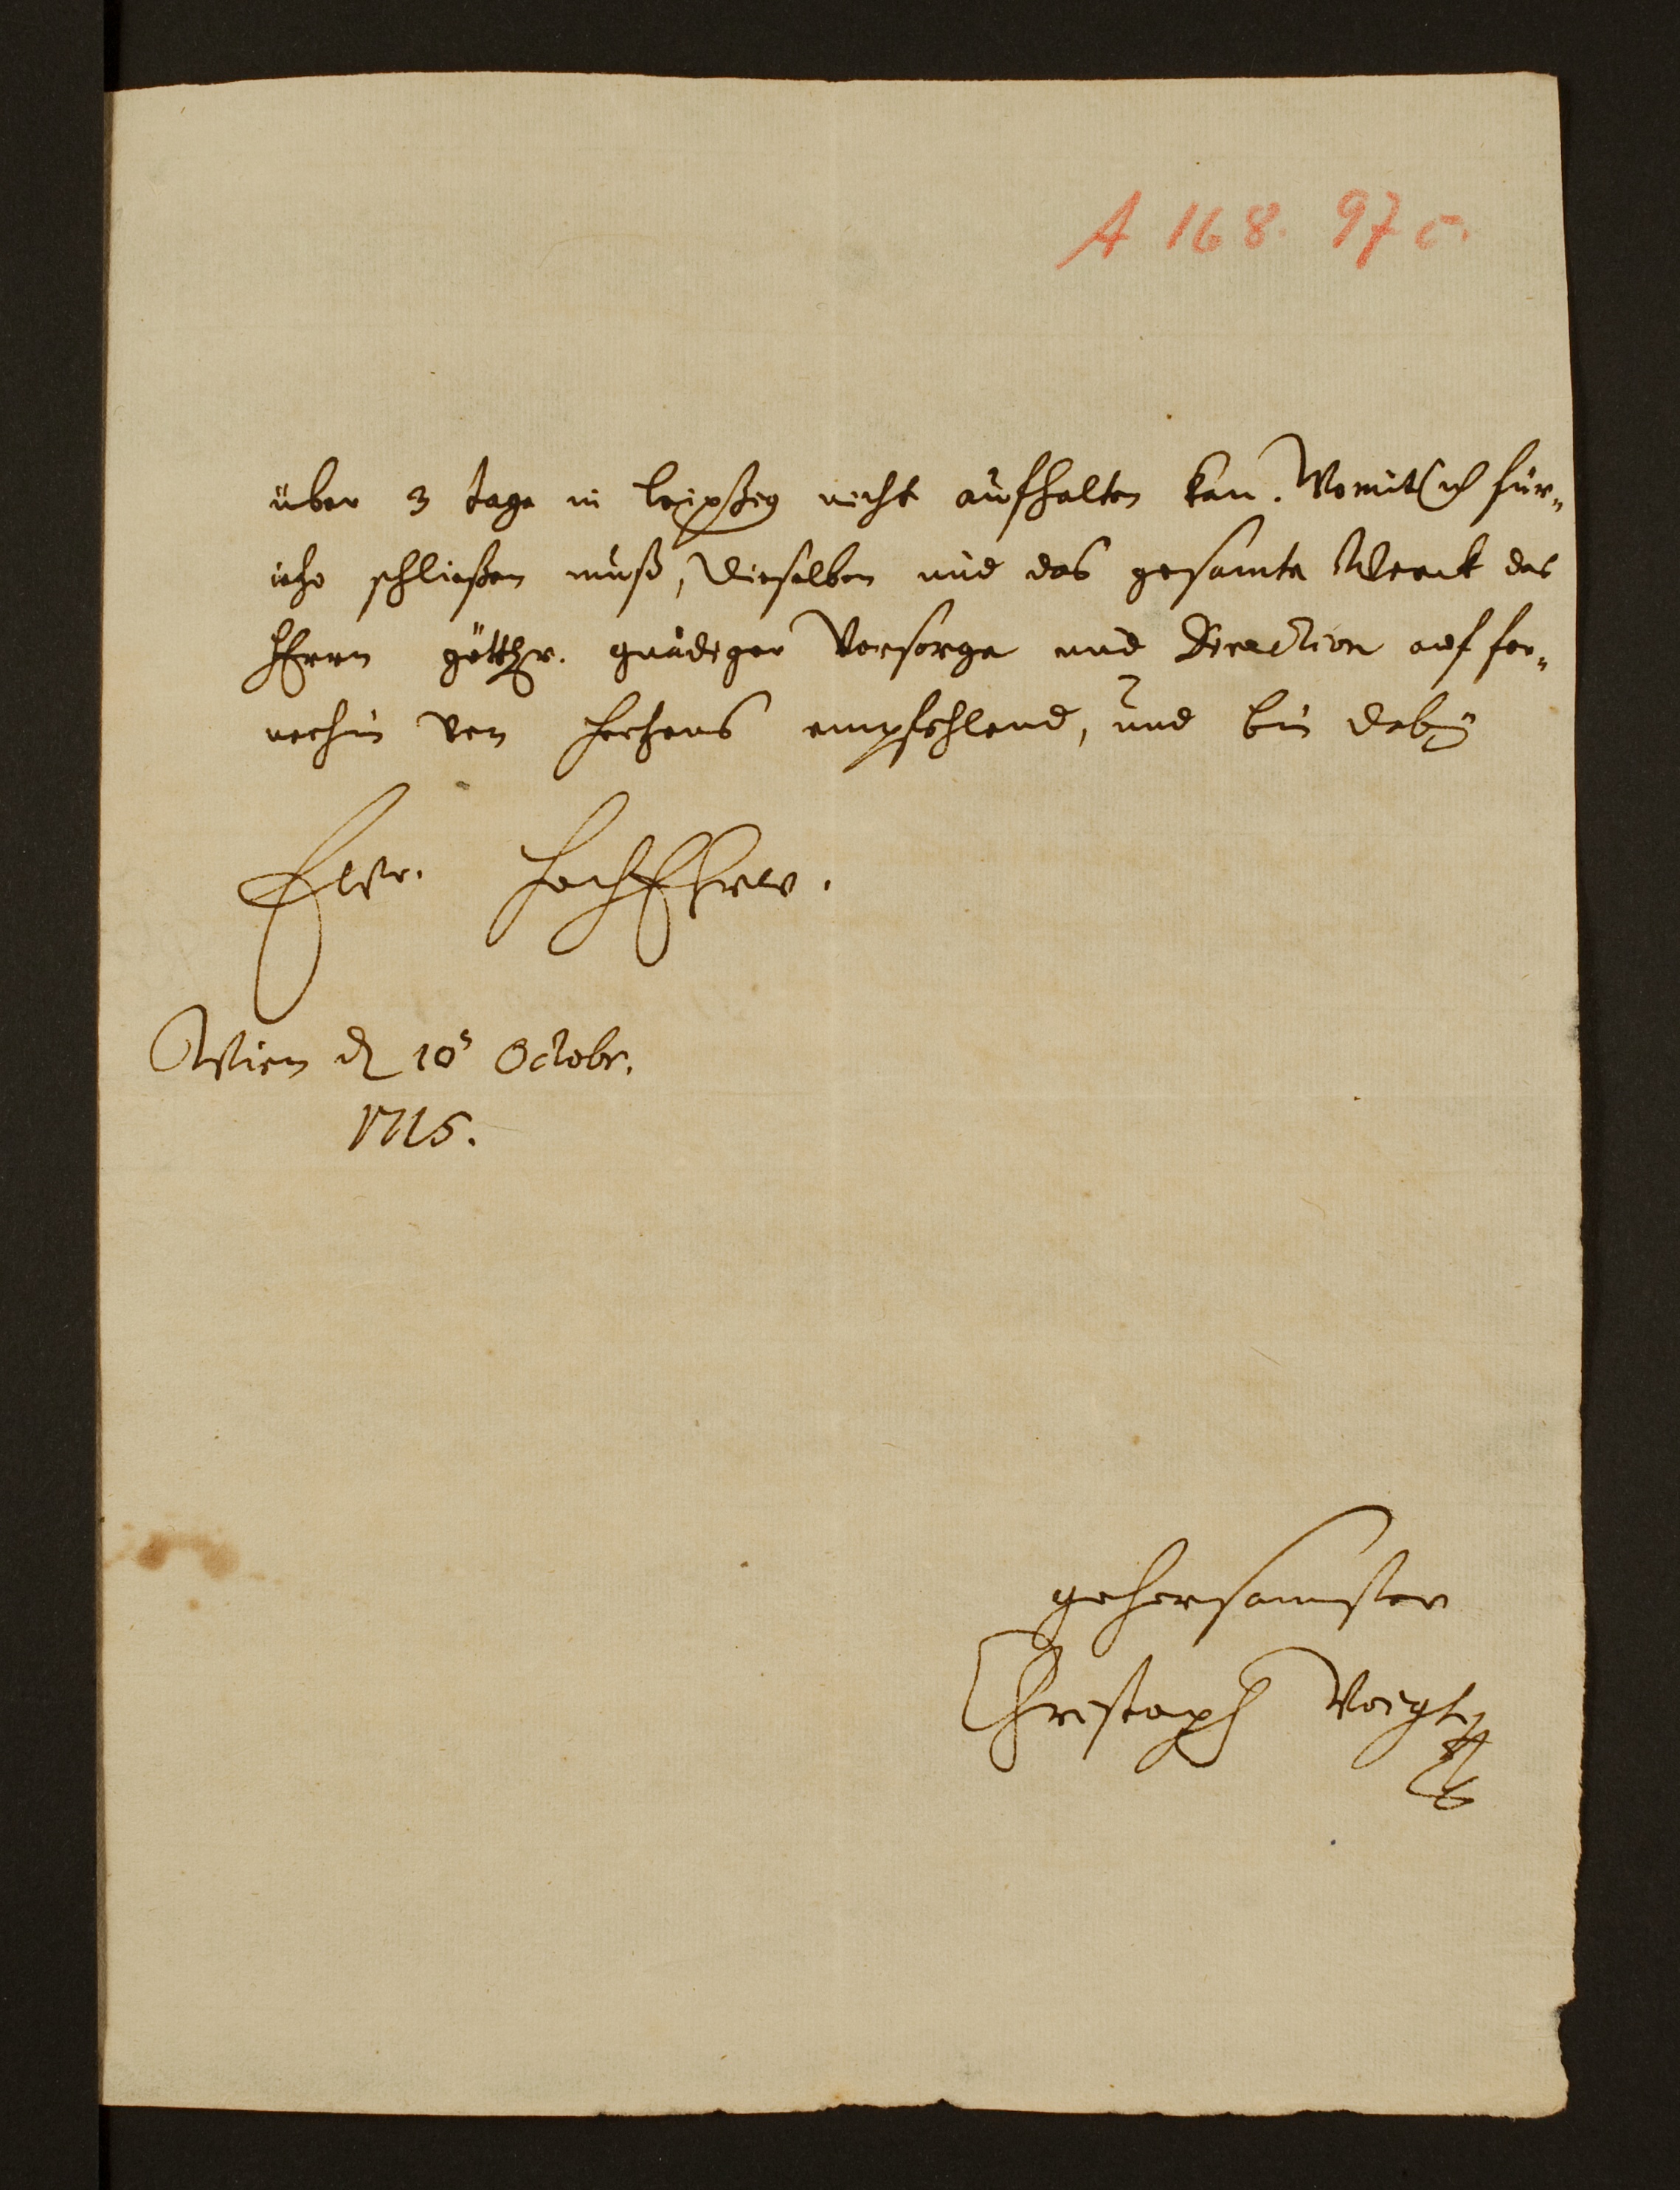 A 168. 97 c.
über 3 tage in leipßig nicht aufhalten kan. Womit ich für-
itzo schließen muß, dieselben und das gesamte Werck des
HErrn göttlr. gnädiger Vorsorge und Direction auf fer-
nerhin von Hertzens empfehlend, und bin dabey
Ewr. HochEhrw.
Wien d 10 Octobr.
1715.
gehorsamster
Christoph Voigt